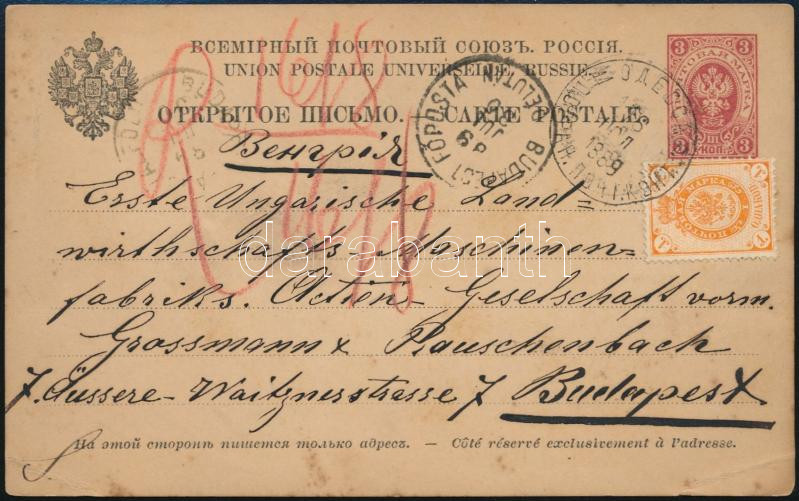 ВСЕМІРНЫЙ ПОЧТОВЫЙ СОЮЗЪ. РОССІЯ.
UNION POSTALE UNIVERSELLE. RUSSIE.
ОТКРЫТОЕ ПИСЬМО. — CARTE POSTALE.
3 3
3 КОП. 3
BUDAPEST FŐPOSTA
ОДЕССА
1889
Венгрія
Erste Ungarische Land
wirthschafts-Maschinen-
fabriks. Actien-Geselschaft vorm.
Grossmann & Rauschenbach
7. Äussere-Waitznerstrasse 7 Budapest
ПОЧТОВАЯ МАРКА
1 1
darabanth
На этой сторонѣ пишется только адресъ. — Côté réservé exclusivement à l'adresse.